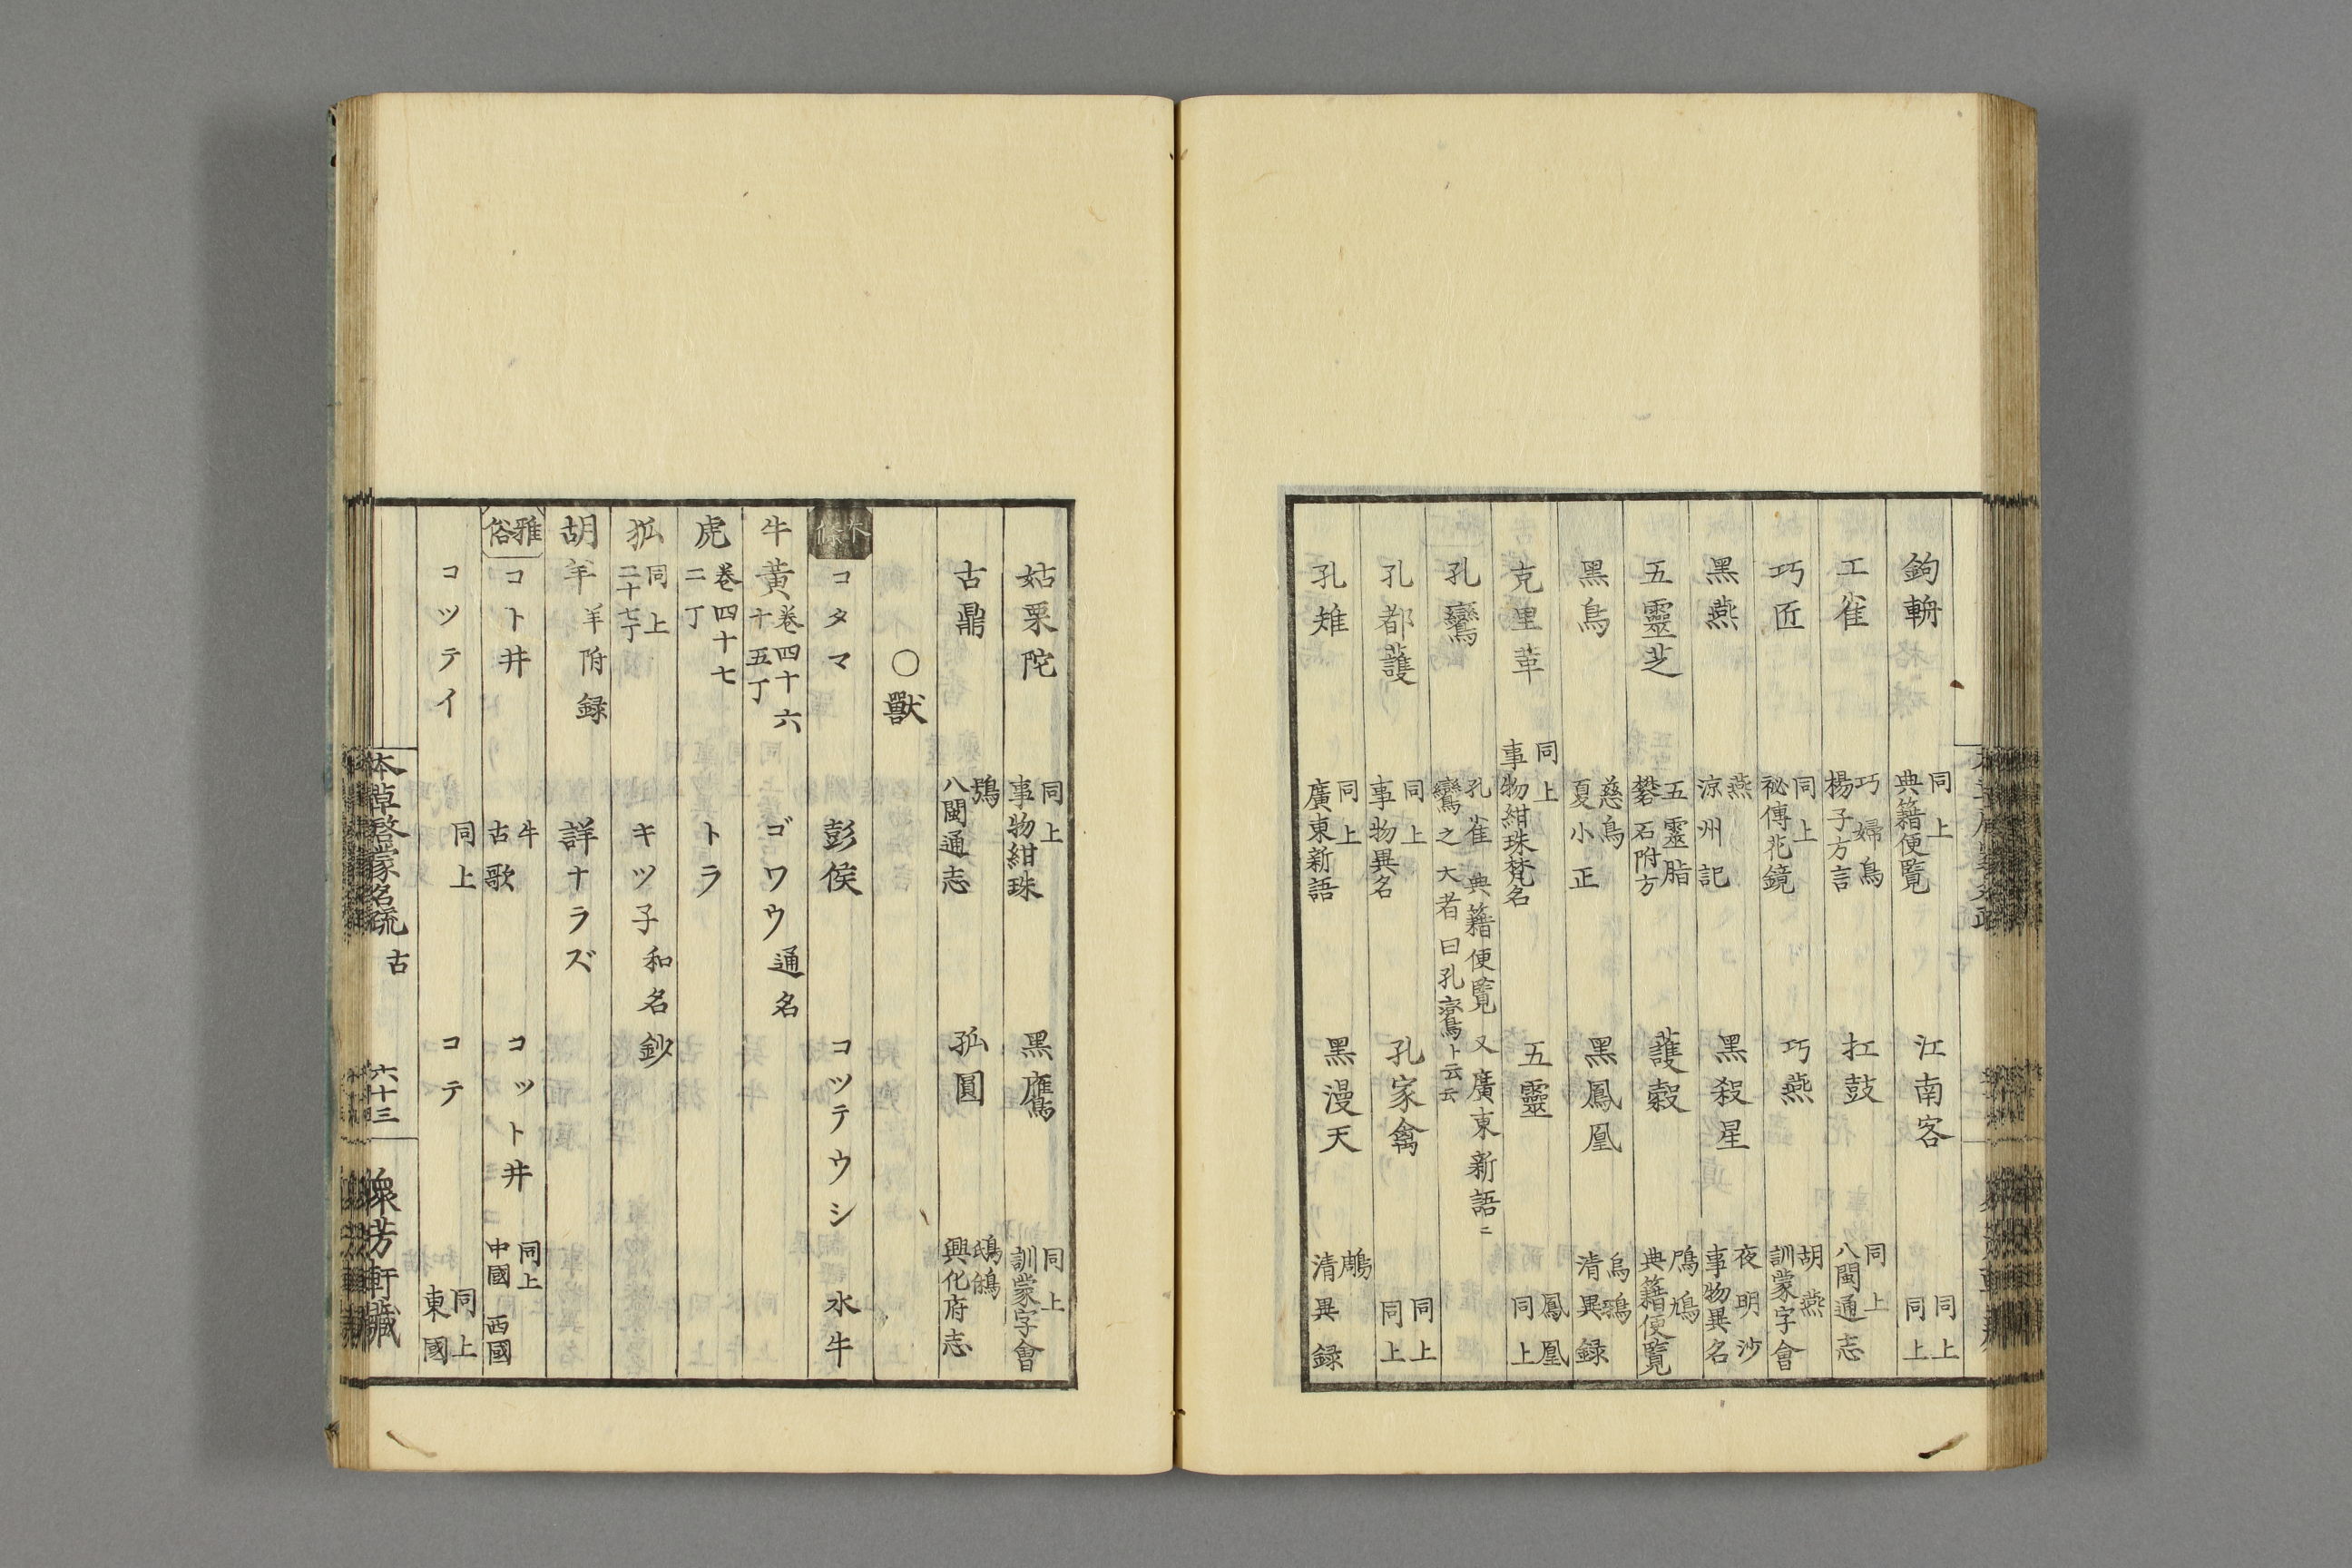 鉤輈 同上 典籍便覽 江南客 同上 同上
工雀 巧婦鳥 楊子方言 扛鼓 同上 八閩通志
巧匠 同上 祕傳花鏡 巧燕 胡燕 訓蒙字會
黑燕 燕 涼州記 黑殺星 夜明沙 事物異名
五靈芝 五靈脂 礬石附方 䕶穀 鳲鳩 典籍便覽
黑鳥 慈鳥 夏小正 黑鳳凰 烏鴉 清異録
克里革 同上 事物紺珠梵名 五靈 鳳凰 同上
孔鸞 孔雀 典籍便覽 又廣東新語ニ 鸞之大者曰孔鸞ト云云
孔都䕶 同上 事物異名 孔家禽 同上 同上
孔雉 同上 廣東新語 黑漫天 鷓 清異録
姑栗陀 同上 事物紺珠 黑鷹 同上 訓蒙字會
古鼎 鴞 八閩通志 孤圓 鴟鵂 興化府志
○獸
本條 コタマ 彭侯 コツテウシ 水牛
牛黃 卷四十六 十五丁 ゴワウ 通名
虎 卷四十七 二丁 トラ
狐 同上 二十七丁 キツ子 和名鈔
胡羊 羊附録 詳ナラズ
雅俗 コト井 牛 古歌 コット井 同上 中國 西國
コツテイ 同上 コテ 同上 東國
本草啓蒙名疏 古 六十三 衆芳軒藏